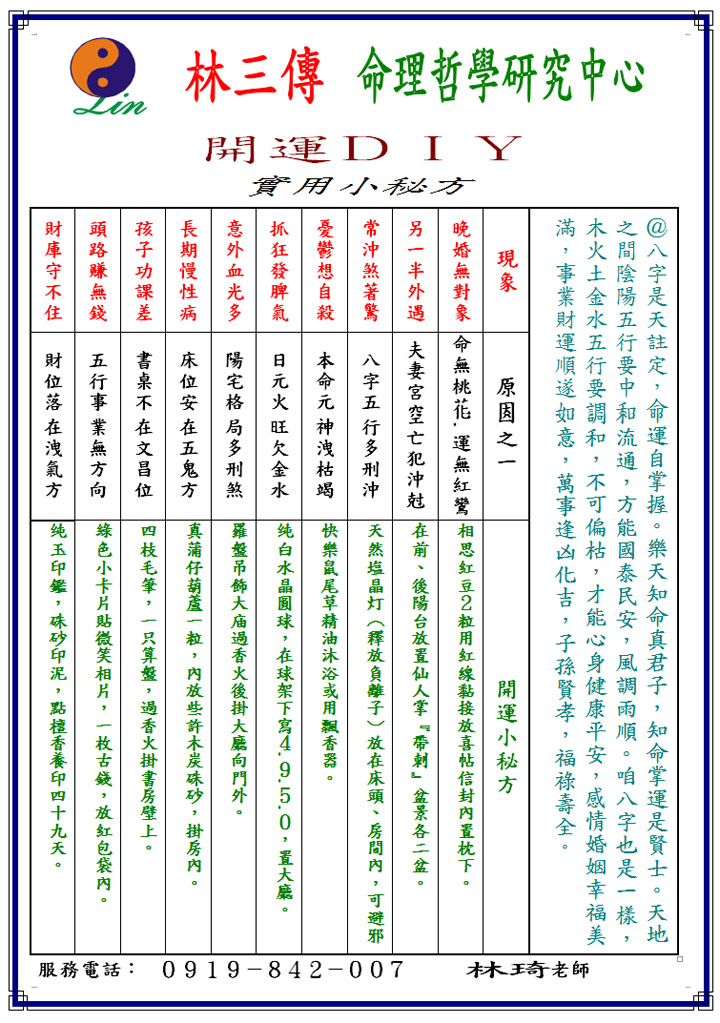 Lin
林三傳 命理哲學研究中心
開運DIY
實用小秘方
@八字是天註定，命運自掌握。樂天知命真君子，知命掌運是賢士。天地
之間陰陽五行要中和流通，方能國泰民安，風調雨順。咱八字也是一樣，
木火土金水五行要調和，不可偏枯，才能心身健康平安，感情婚姻幸福美
滿，事業財運順遂如意，萬事逢凶化吉，子孫賢孝，福祿壽全。
現象
原因之一
開運小秘方
晚婚無對象
命無桃花.運無紅鸞
相思紅豆2粒用紅線黏接放喜帖信封內置枕下。
另一半外遇
夫妻宮空亡犯沖尅
在前、後陽台放置仙人掌『帶刺』盆景各二盆。
常沖煞著驚
八字五行多刑沖
天然塩晶灯（釋放負離子）放在床頭、房間內，可避邪
憂鬱想自殺
本命元神洩枯竭
快樂鼠尾草精油沐浴或用飄香器。
抓狂發脾氣
日元火旺欠金水
纯白水晶圓球，在球架下寫4.9.5.0，置大廳。
意外血光多
陽宅格局多刑煞
羅盤吊飾大庙過香火後掛大廳向門外。
長期慢性病
床位安在五鬼方
真蒲仔葫蘆一粒，內放些許木炭硃砂，掛房內。
孩子功課差
書桌不在文昌位
四枝毛筆，一只算盤，過香火掛書房壁上。
頭路賺無錢
五行事業無方向
綠色小卡片貼微笑相片，一枚古錢，放紅包袋內。
財庫守不住
財位落在洩氣方
纯玉印鑑，硃砂印泥，點檀香養印四十九天。
服務電話： 0919-842-007 林琦老師